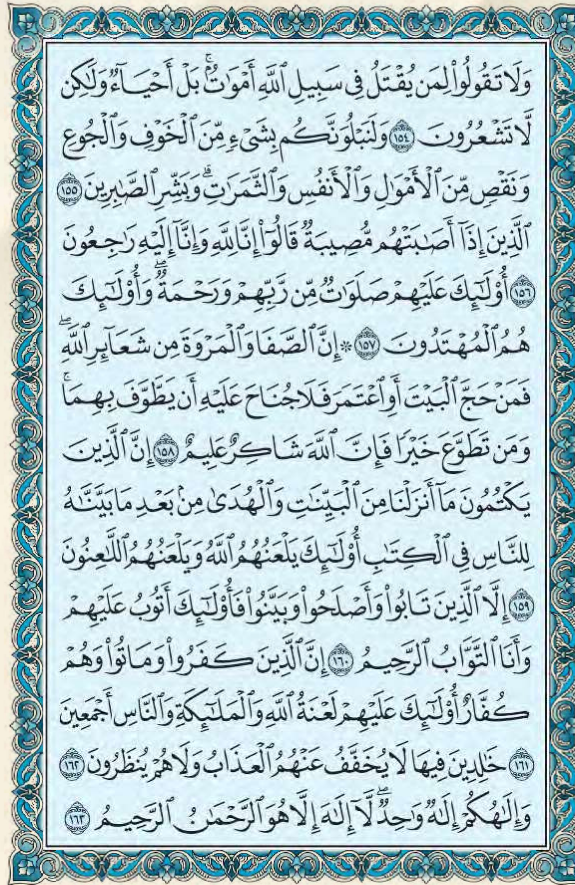 وَلَا تَقُولُوا۟ لِمَن يُقْتَلُ فِى سَبِيلِ ٱللَّهِ أَمْوَٰتٌۢ ۚ بَلْ أَحْيَآءٌ وَلَـٰكِن
لَّا تَشْعُرُونَ ١٥٤ وَلَنَبْلُوَنَّكُم بِشَىْءٍ مِّنَ ٱلْخَوْفِ وَٱلْجُوعِ
وَنَقْصٍ مِّنَ ٱلْأَمْوَٰلِ وَٱلْأَنفُسِ وَٱلثَّمَرَٰتِ ۗ وَبَشِّرِ ٱلصَّـٰبِرِينَ ١٥٥
ٱلَّذِينَ إِذَآ أَصَـٰبَتْهُم مُّصِيبَةٌ قَالُوٓا۟ إِنَّا لِلَّهِ وَإِنَّآ إِلَيْهِ رَٰجِعُونَ
١٥٦ أُو۟لَـٰٓئِكَ عَلَيْهِمْ صَلَوَٰتٌ مِّن رَّبِّهِمْ وَرَحْمَةٌ ۖ وَأُو۟لَـٰٓئِكَ
هُمُ ٱلْمُهْتَدُونَ ١٥٧ ۞ إِنَّ ٱلصَّفَا وَٱلْمَرْوَةَ مِن شَعَآئِرِ ٱللَّهِ ۖ
فَمَنْ حَجَّ ٱلْبَيْتَ أَوِ ٱعْتَمَرَ فَلَا جُنَاحَ عَلَيْهِ أَن يَطَّوَّفَ بِهِمَا ۚ
وَمَن تَطَوَّعَ خَيْرًا فَإِنَّ ٱللَّهَ شَاكِرٌ عَلِيمٌ ١٥٨ إِنَّ ٱلَّذِينَ
يَكْتُمُونَ مَآ أَنزَلْنَا مِنَ ٱلْبَيِّنَـٰتِ وَٱلْهُدَىٰ مِنۢ بَعْدِ مَا بَيَّنَّـٰهُ
لِلنَّاسِ فِى ٱلْكِتَـٰبِ أُو۟لَـٰٓئِكَ يَلْعَنُهُمُ ٱللَّهُ وَيَلْعَنُهُمُ ٱللَّـٰعِنُونَ
١٥٩ إِلَّا ٱلَّذِينَ تَابُوا۟ وَأَصْلَحُوا۟ وَبَيَّنُوا۟ فَأُو۟لَـٰٓئِكَ أَتُوبُ عَلَيْهِمْ
وَأَنَا ٱلتَّوَّابُ ٱلرَّحِيمُ ١٦٠ إِنَّ ٱلَّذِينَ كَفَرُوا۟ وَمَاتُوا۟ وَهُمْ
كُفَّارٌ أُو۟لَـٰٓئِكَ عَلَيْهِمْ لَعْنَةُ ٱللَّهِ وَٱلْمَلَـٰٓئِكَةِ وَٱلنَّاسِ أَجْمَعِينَ
١٦١ خَـٰلِدِينَ فِيهَا لَا يُخَفَّفُ عَنْهُمُ ٱلْعَذَابُ وَلَا هُمْ يُنظَرُونَ ١٦٢
وَإِلَـٰهُكُمْ إِلَـٰهٌ وَٰحِدٌ ۖ لَّآ إِلَـٰهَ إِلَّا هُوَ ٱلرَّحْمَـٰنُ ٱلرَّحِيمُ ١٦٣